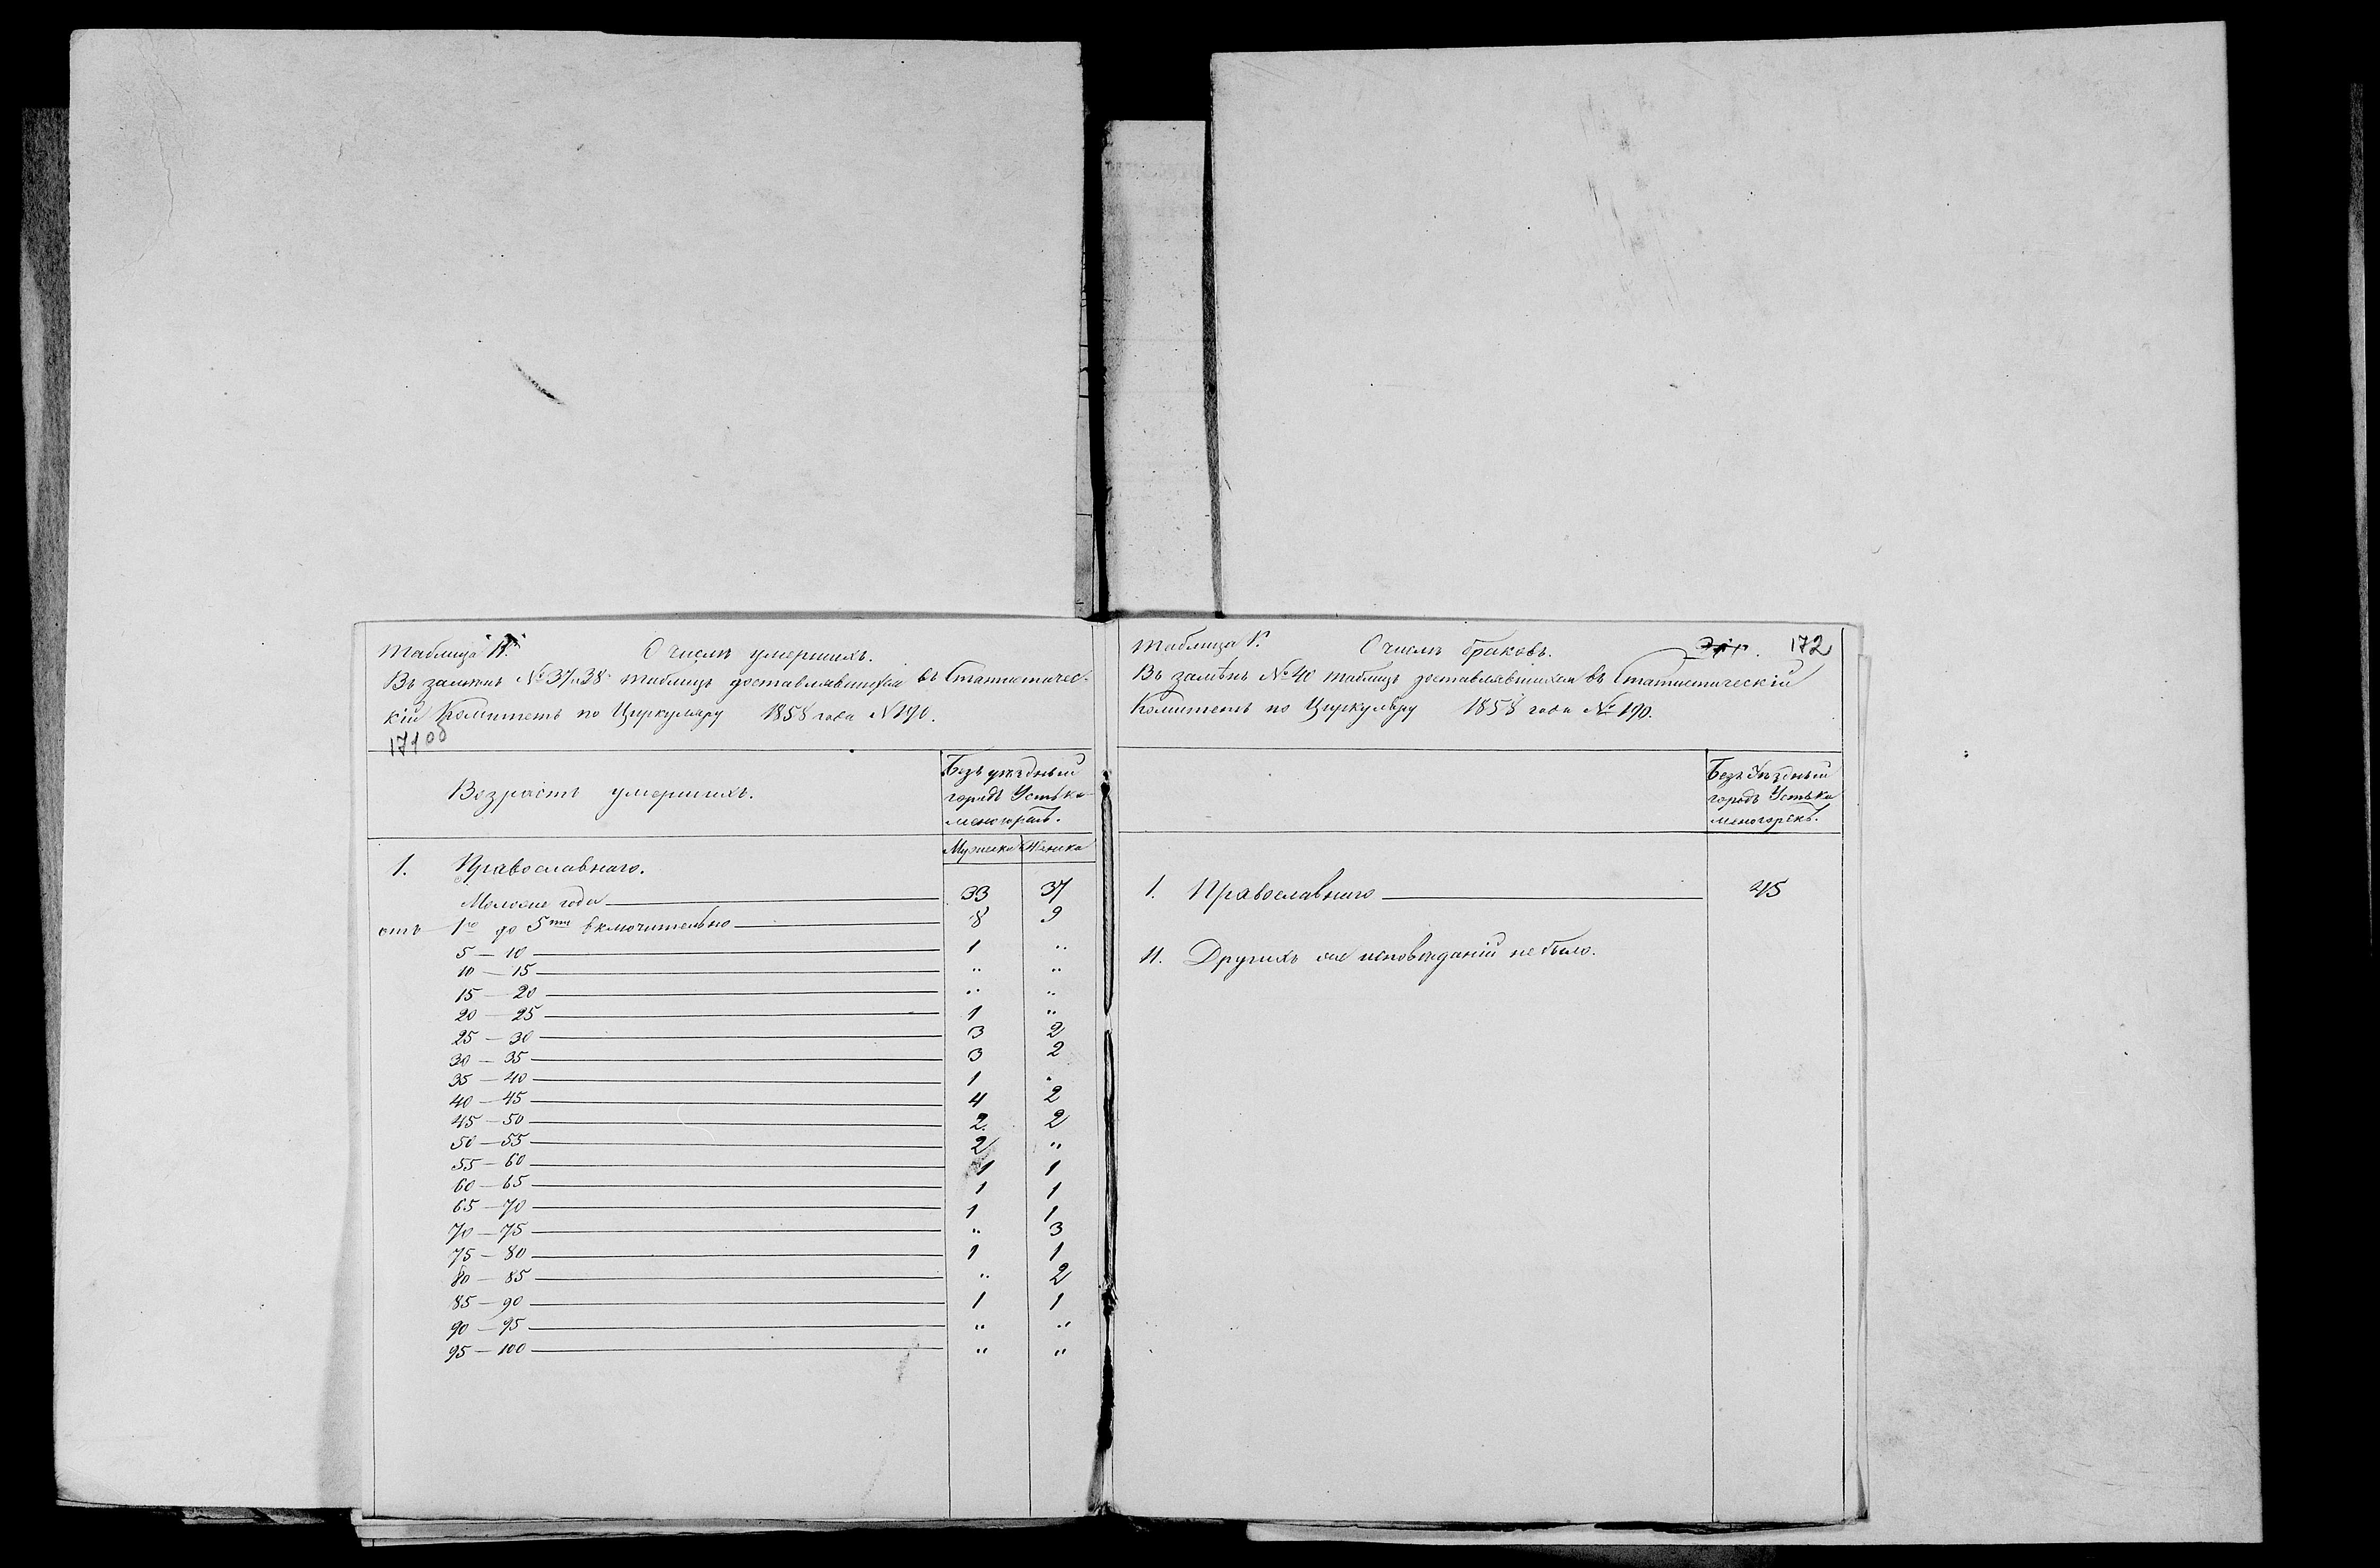 Таблица В.
О числѣ умершихъ.
Въ замѣнъ № 37 и 38 таблицъ доставлявшихся въ Статистичес-
кій Комитетъ по Циркуляру 1858 года № 190.
171 об
Возрастъ умершихъ.
Безъ уѣздный
городъ Устька-
меногорскъ.
Мужеска Женска
1. Православнаго.
Моложе года 33 37
отъ 1го до 5ти включительно 8 9
5 — 10 1 "
10 — 15 " "
15 — 20 " "
20 — 25 1 "
25 — 30 3 2
30 — 35 3 2
35 — 40 1 "
40 — 45 4 2
45 — 50 2 2
50 — 55 2 "
55 — 60 1 1
60 — 65 1 1
65 — 70 1 1
70 — 75 " 3
75 — 80 1 1
80 — 85 " 2
85 — 90 1 1
90 — 95 " "
95 — 100 " "
Таблица Г.
О числѣ браковъ.
172
Въ замѣнъ № 40 таблицъ доставлявшихся въ Статистическій
Комитетъ по Циркуляру 1858 года № 190.
Безъ Уѣздный
городъ Устька
меногорскъ.
1. Православнаго 45
11. Другихъ исповѣданій не было.